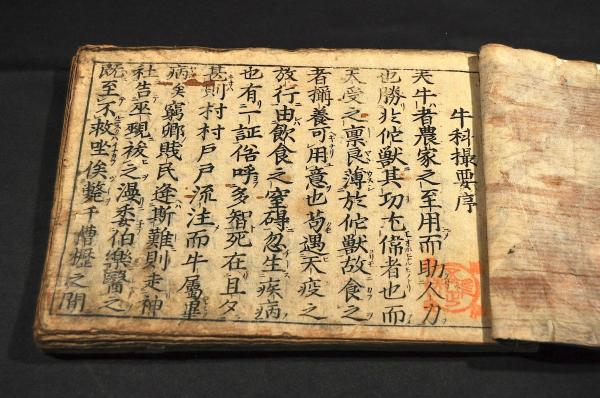 牛科撮要序
夫牛者農家之至用而助人力
也勝於佗獸其功尤偉者也而
天受之禀良薄於佗獸故食之
者養可用意也苟遇天疫之
放行由飲食之窒碍忽生疾病
也有一証俗呼多智死在且夕
甚則村村戸戸流注而牛属畢
病矣窮郷賤民逢斯難則走神
社告平現祓之漫委伯樂醫之
既至不救坐俟斃于槽櫪之間